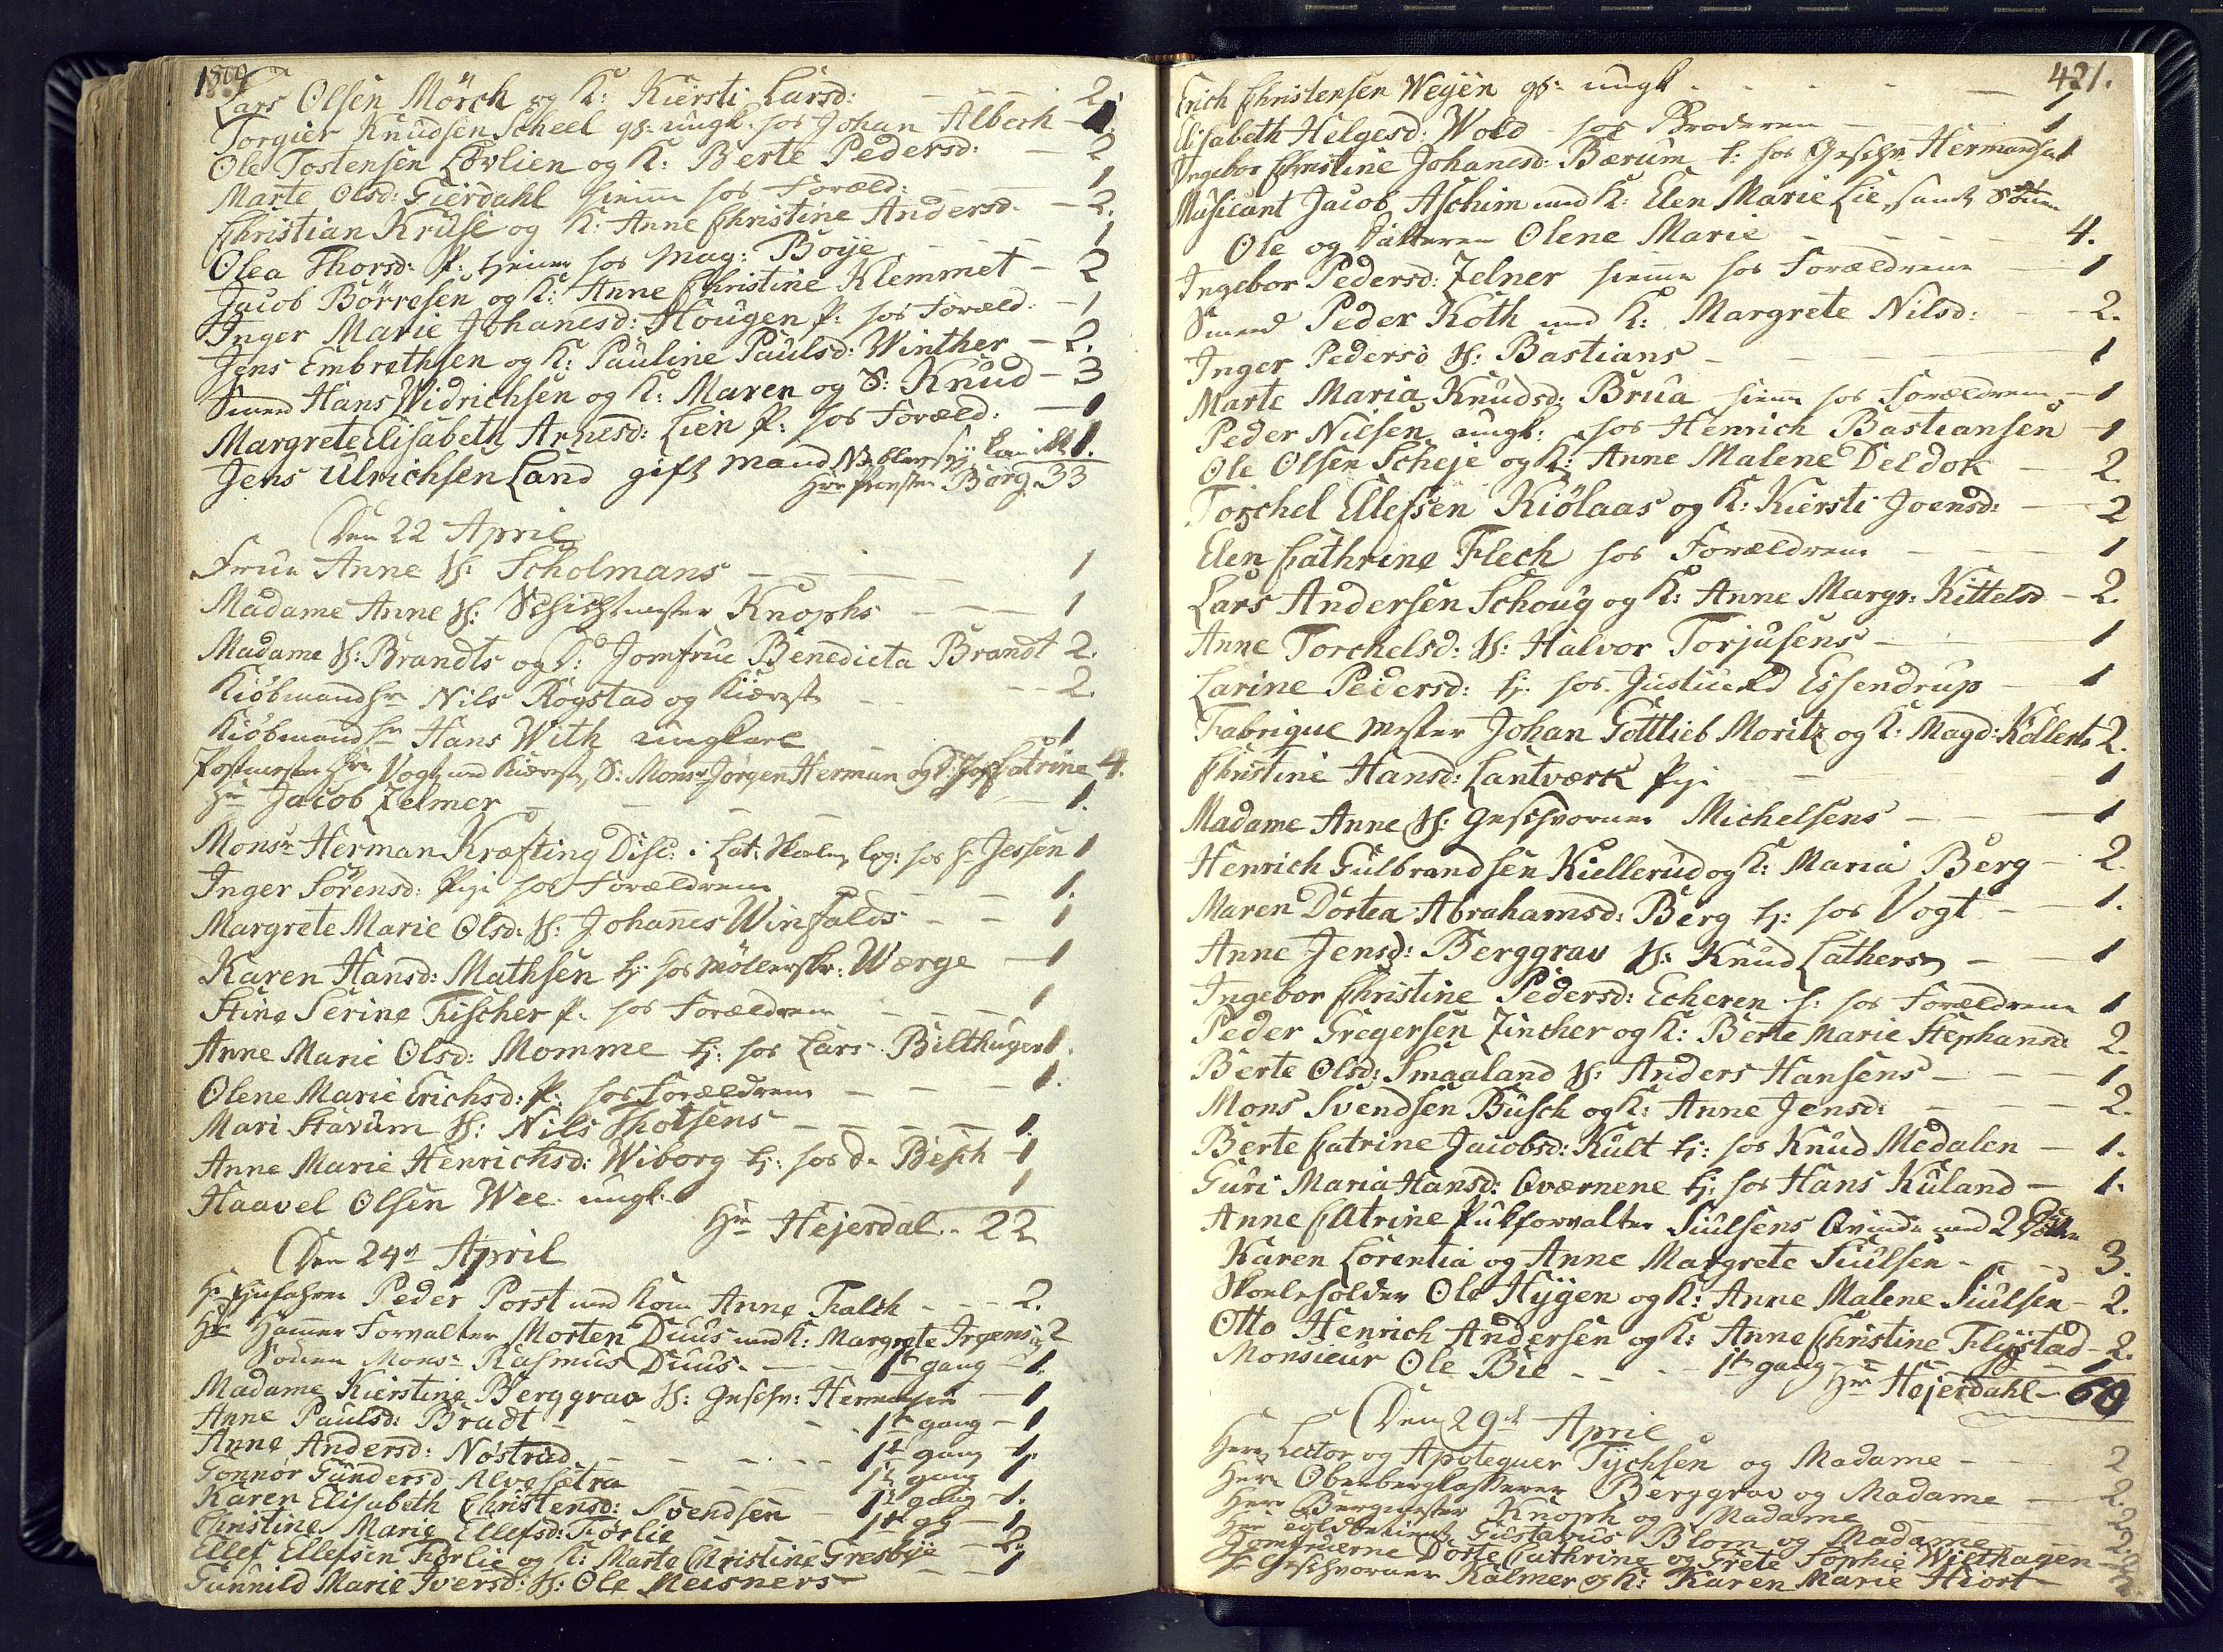 1809
Lars Olsen Mörch og K: Kiersti Larsd: - - - 2.
Torgier Knudsen Scheel gs: ungk. hos Johan Alberh - 1.
Ole Tostensen Lövlien og K: Berte Pedersd: - 2
Marte Olsd: Gierdahl hiemme hos Foræld: 1
Christian Kruse og K: Anne Christine Andersd. - 2.
Olea Thorsd: P: tienn hos Mag: Boije - - - 1
Jacob Börresen og K: Anne Christine Klemmet - 2
Inger Marie Johanesd: Hougen P: hos Foræld: - 1
Jens Embrethsen og K: Pauline Paulsd: Winther - 2.
Smed Hans Widrichsen og K: Maren og S: Knud - 3
Margrete Elisabeth Arnesd: Lien P: hos Foræld: - 1
Jens Ulrichsen Land gift Mand 1.
Borg. 33
Den 22 April
Frue Anne S: Scholmans - - - - 1
Madame Anne S: Schichtmester Knophs - - - 1
Madame S: Brandts og D: Jomfrue Benedicta Brandt 2.
Kiöbmand Hr Nils Rogstad og Kiæreste - - 2.
Kiöbmand Hr Hans With ungkarl - 1
Postmester Hr Vogt med Kiæreste, S: Monsr Jörgen Herman og D: Jfr Catrine 4.
Hr Jacob Zelmer - - - - 1.
Monsr Herman Kræfting Disc: i Lat: Skolen, log: hos Hr Jessen 1
Inger Sörensd: Pige hos Forældrene - - - 1.
Margrete Marie Olsd. S: Johanes Winfalds - - 1
Karen Hansd: Mathsen tj: hos Möllerskr: Wærge - 1
Stine Serine Fischer P. hos Forældrene - - - 1
Anne Marie Olsd: Momme tj: hos Lars Bilthuger 1.
Olene Marie Erichsd: P: hos Forældrene - - - 1.
Mari Stavum S: Nils Thotsens - - - - 1.
Anne Marie Henrichsd: Wiborg tj: hos d. Besch - 1
Haavel Olsen Wee. ungk. 1
Hr Hejerdal. - 22
Den 24de April
Peder Porst med Kone Anne Falch - - - 2.
Hr Hammer Forvalter Morten Duus med K: Margrete Irgens og 2
Sönen Monsr Rasmus Duus. - - - 1te gang - 1.
Madame Kierstine Berggrav S: Geschv: Hermansen - 1
Anne Paulsd: Bradt - - - 1te gang - 1
Anne Andersd: Nöstrud - - - 1te gang 1.
Gonnor Gundersd Alvesætra 1te gang 1
Karen Elisabeth Christensd: Svendsen - 1te gang - 1.
Christine Marie Ellefsd: Forlie 1te gs - 1
Ellef Ellefsen Forlie og K: Marte Christine Gresbye - 2.
Gunnild Marie Iversd: S: Ole Meisners - - 1
421.
Erich Christensen Weyen gs: ungk. - - - - 1
Elisabeth Helgesd: Wold hos Broderen - - - 1
Ingebor Christine Johanesd: Bærum t: hos Geschv: Hermansen 1
Musicant Jacob Aschim med K: Elen Marie Lie, samt Sönen
Ole og Datteren Olene Marie - - - - 4.
Ingebor Pedersd: Zelner hiemme hos Forældrene - 1
Smed Peder Koth med K: Margrete Nilsd: - - 2.
Inger Pedersd S: Bastians - - - - 1
Marte Maria Knudsd: Brua hiemme hos Forældrene - 1
Peder Nilsen ungk: hos Henrich Bastiansen - 1
Ole Olsen Scheje og K: Anne Malene Deldok - 2.
Torchel Ellefsen Kiölaas og K: Kiersti Joensd: - 2
Elen Cathrine Flech hos Forældrene - - - 1
Lars Andersen Schoug og K: Anne Margr: Kittelsd - 2.
Anne Torchelsd: S: Halvor Torjusens - - - 1
Larine Pedersd: tj: hos Justiceraad Essendrup - 1
Fabrique Mester Johan Gottlieb Moritz og K: Magd: Köllerts 2.
Christine Hansd: Lantværk Pige - - - 1
Madame Anne S: Geschvorner Michelsens - - - 1
Henrich Gulbrandsen Kiellerud og K: Maria Berg - 2.
Maren Dortea Abrahamsd: Berg tj: hos Vogt - - 1.
Anne Jensd: Berggrav S: Knud Lathers - - 1
Ingebor Christine Pedersd: Echeren h: hos Forældrene 1
Peder Gregersen Zincher og K: Berte Marie Stephansd: 2.
Berte Olsd: Smaaland S: Anders Hansens - - - 1
Mons Svendsen Busch og K: Anne Jensd: - - - 2.
Berte Catrine Jacobsd: Kult tj: hos Knud Medalen - 1.
Guri Maria Hansd: Qværnene tj: hos Hans Kuland - 1.
Anne Catrine Pukforvalter Siulsens Qvinde med 2 Dötre
Karen Lorentia og Anne Margrete Siulsen - - 3.
Skoleholder Ole Hygen og K: Anne Malene Siulsen - 2.
Otto Henrich Andersen og K: Anne Christine Flystad - 2.
Monsieur Ole Bie - - - 1te gang - 1
Hr Hejerdahl - 60
Den 29de April
Herr Lector og Apotequer Tychsen og Madame - - 2
Herr Oberbergkasserer Berggrav og Madame - - 2.
Herr Bergmester Knoph og Madame - 2
Hr Guldbetient Gustavus Blom og Madame - 2
Jomfruerne Dorte Cathrine og Grete Sophie Wilthagen - 2
Hr Geschvorner Kalmer og K: Karen Marie Hiort - 2